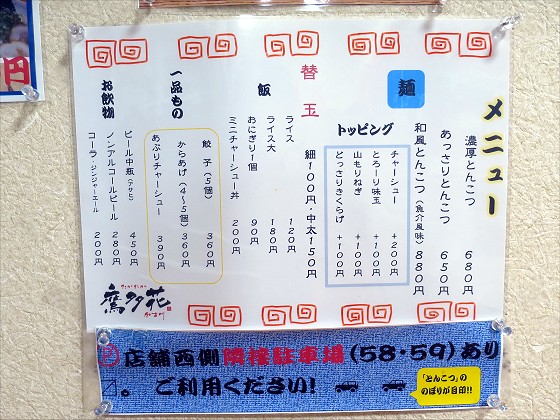 メニュー
麺
濃厚とんこつ 680円
あっさりとんこつ 650円
和風とんこつ（魚介風味） 880円
トッピング
チャーシュー +200円
とろーり味玉 +100円
山もりねぎ +100円
どっさりきくらげ +100円
替玉
細100円・中太150円
飯
ライス 120円
ライス大 180円
おにぎり1個 90円
ミニチャーシュー丼 200円
一品もの
餃子（5個） 360円
からあげ（4～5個） 360円
あぶりチャーシュー 390円
お飲物
ビール中瓶（アサヒ） 450円
ノンアルコールビール 280円
コーラ・ジンジャーエール 200円
鷹多花
円
P店舗西側隣接駐車場（58・59）あり
ご利用ください!
「とんこつ」の
のぼりが目印!!